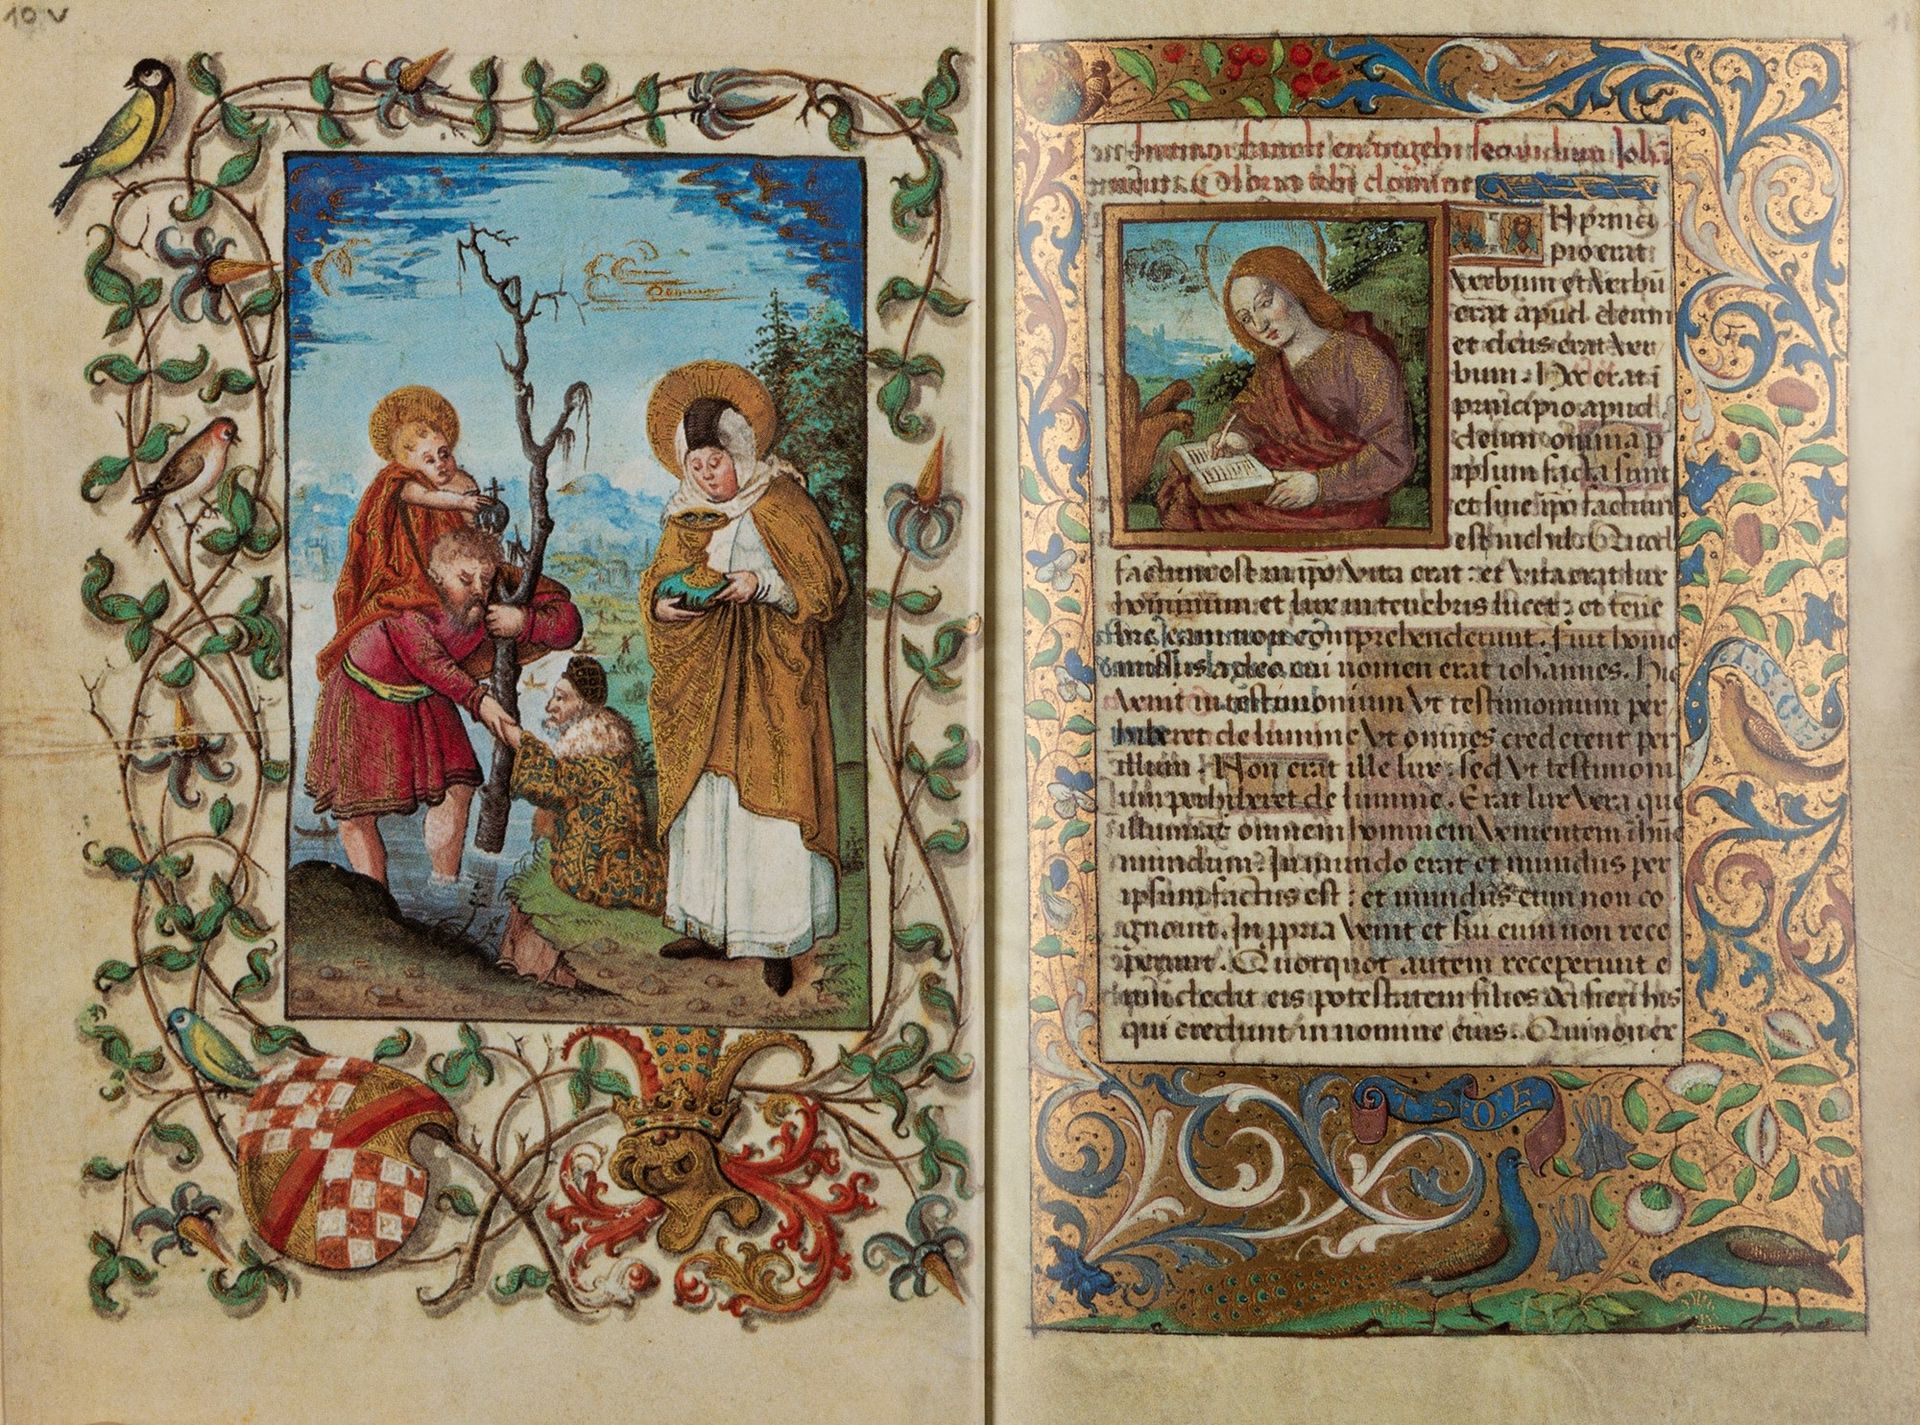 10 v
euangelij secundum Johā
Gloria tibi domine
N princi
pio erat
verbum et verbū
erat apud deum
et deus erat ver
bum. Hoc erat ī
principio apud
deum omnia p
ipsum facta sunt
et sine ip̄o factum
est nichil Quod
factum est in ip̄o vita erat: et vita erat lux
hominum et lux in tenebris lucet: et tene
bre eam non comprehenderunt. Fuit homo
missus a deo cui nomen erat iohannes. Hic
venit in testimonium vt testimonium per
hiberet de lumine vt omnes crederent per
illum. Non erat ille lux. sed vt testimoni
um perhiberet de lumine. Erat lux vera que
illuminat omnem hominem venientem
mundum. In mundo erat et mundus per
ipsum factus est: et mundus eum non co
gnouit. In ppria venit et sui eum non rece
perunt. Quotquot autem receperunt e
um dedit eis potestatem filios dei fieri his
qui credunt in nomine eius. Qui non ex
T S O E